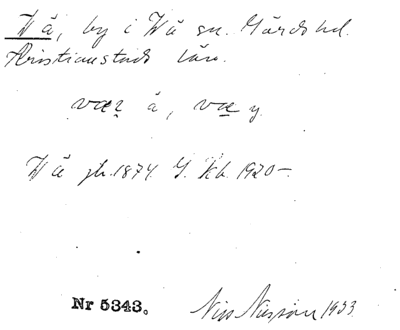 Wä, by i Wä sn. Gärds hd.
Kristianstads län.
væz å, væ y
Wä jb. 1874. G. Kb. 1920-.
Nr 5343.
Nils Nilsson 1933.